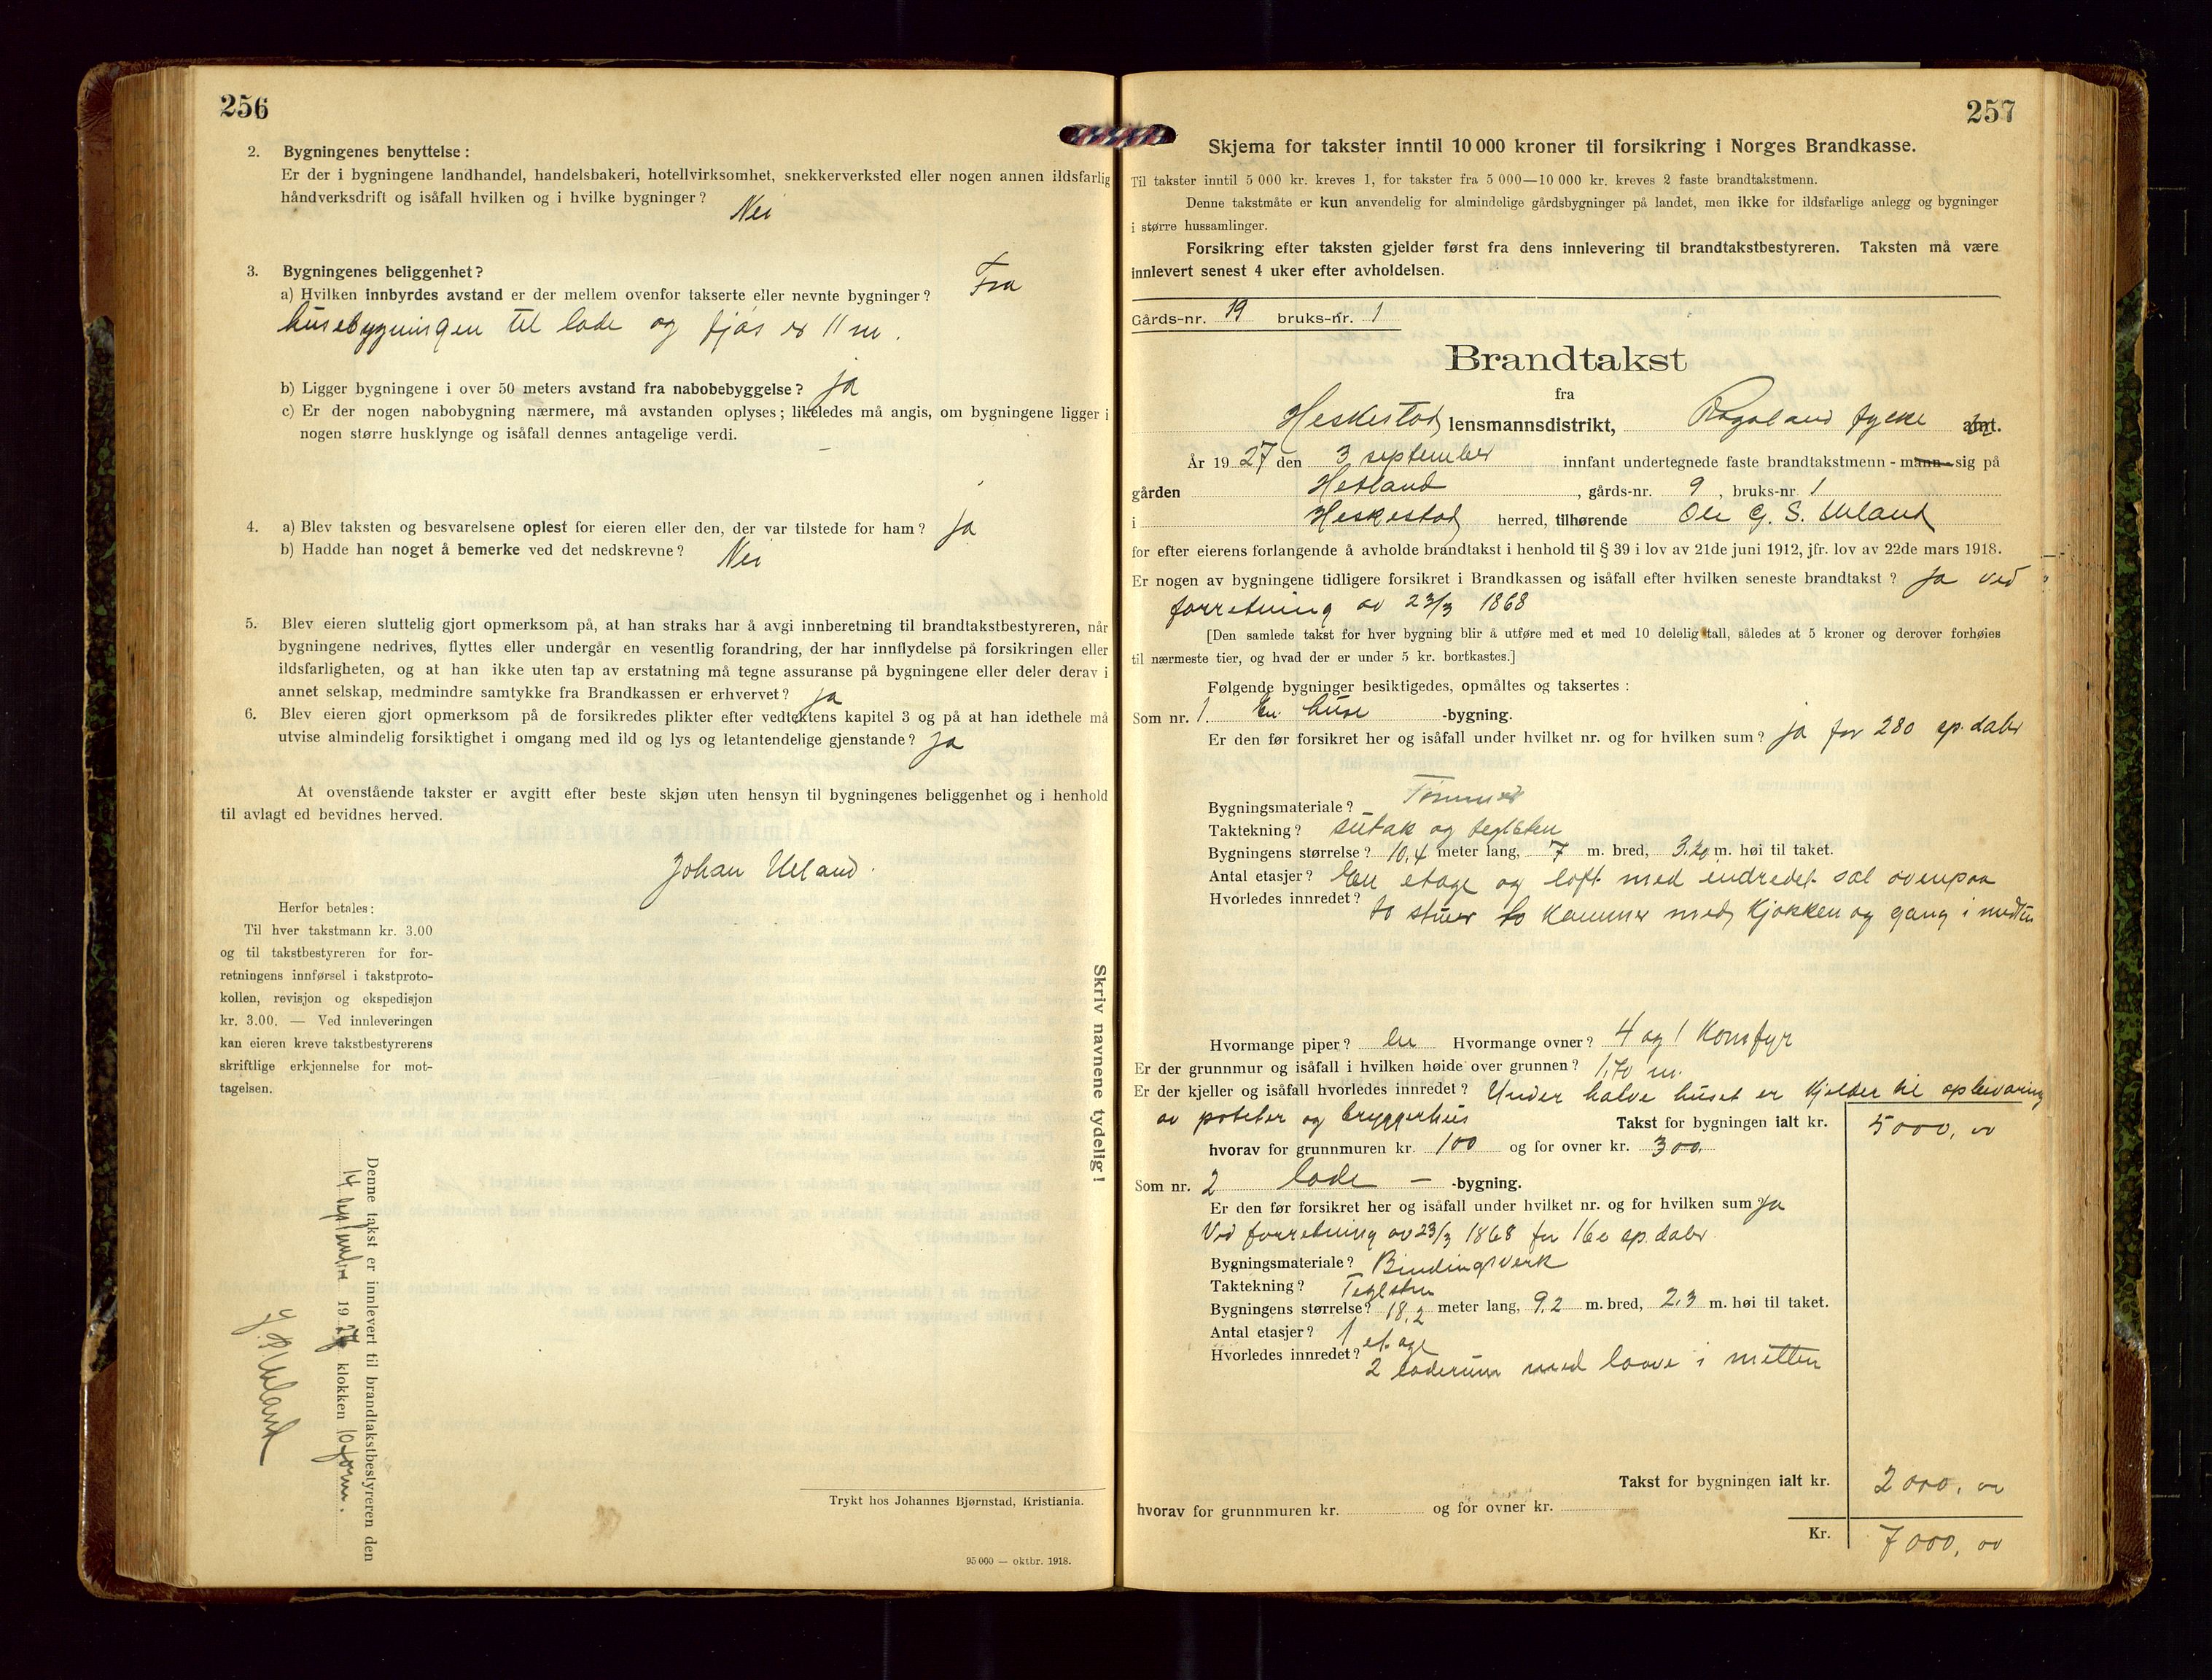 256
2. Bygningenes benyttelse:
Er der i bygningene landhandel, handelsbakeri, hotellvirksomhet, snekkerverksted eller nogen annen ildsfarlig
håndverksdrift og isåfall hvilken og i hvilke bygninger? Nei
3. Bygningenes beliggenhet?
a) Hvilken innbyrdes avstand er der mellem ovenfor takserte eller nevnte bygninger? Fra
husebygningen til lade og fjøs er 11 m.
b) Ligger bygningene i over 50 meters avstand fra nabobebyggelse? ja
c) Er der nogen nabobygning nærmere, må avstanden oplyses; likeledes må angis, om bygningene ligger i
nogen større husklynge og isåfall dennes antagelige verdi.
4. a) Blev taksten og besvarelsene oplest for eieren eller den, der var tilstede for ham? ja
b) Hadde han noget å bemerke ved det nedskrevne? Nei
5. Blev eieren sluttelig gjort opmerksom på, at han straks har å avgi innberetning til brandtakstbestyreren, når
bygningene nedrives, flyttes eller undergår en vesentlig forandring, der har innflydelse på forsikringen eller
ildsfarligheten, og at han ikke uten tap av erstatning må tegne assuranse på bygningene eller deler derav i
annet selskap, medmindre samtykke fra Brandkassen er erhvervet? ja
6. Blev eieren gjort opmerksom på de forsikredes plikter efter vedtektens kapitel 3 og på at han idethele må
utvise almindelig forsiktighet i omgang med ild og lys og letantendelige gjenstande? ja
At ovenstående takster er avgitt efter beste skjøn uten hensyn til bygningenes beliggenhet og i henhold
til avlagt ed bevidnes herved.
Johan Ueland.
Herfor betales:
Til hver takstmann kr. 3.00
og til takstbestyreren for for-
retningens innførsel i takstproto-
kollen, revisjon og ekspedisjon
kr. 3.00. — Ved innleveringen
kan eieren kreve takstbestyrerens
skriftlige erkjennelse for mot-
tagelsen.
Skriv navnene tydelig!
Denne takst er innlevert til brandtakstbestyreren den
14 september 1927 klokken 10 form.
Ueland
Trykt hos Johannes Bjørnstad, Kristiania.
95 000 — oktbr. 1918.
257
Skjema for takster inntil 10 000 kroner til forsikring i Norges Brandkasse.
Til takster inntil 5 000 kr. kreves 1, for takster fra 5 000—10 000 kr. kreves 2 faste brandtakstmenn.
Denne takstmåte er kun anvendelig for almindelige gårdsbygninger på landet, men ikke for ildsfarlige anlegg og bygninger
i større hussamlinger.
Forsikring efter taksten gjelder først fra dens innlevering til brandtakstbestyreren. Taksten må være
innlevert senest 4 uker efter avholdelsen.
Gårds-nr. 19 bruks-nr. 1
Brandtakst
fra
Heskestad lensmannsdistrikt, Rogaland fylke amt.
År 1927 den 3 september innfant undertegnede faste brandtakstmenn - mann - sig på
gården Hetland, gårds-nr. 9, bruks-nr 1
i Heskestad herred, tilhørende Ole G. S. Ueland
for efter eierens forlangende å avholde brandtakst i henhold til § 39 i lov av 21de juni 1912, jfr. lov av 22de mars 1918.
Er nogen av bygningene tidligere forsikret i Brandkassen og isåfall efter hvilken seneste brandtakst? ja ved
forretning av 23/3 1868
[Den samlede takst for hver bygning blir å utføre med et med 10 delelig tall, således at 5 kroner og derover forhøies
til nærmeste tier, og hvad der er under 5 kr. bortkastes.]
Følgende bygninger besiktigedes, opmåltes og taksertes:
Som nr. 1. En huse -bygning.
Er den før forsikret her og isåfall under hvilket nr. og for hvilken sum? ja for 280 sp. daler
Bygningsmateriale? Tømmer
Taktekning? sutak og teglsten
Bygningens størrelse? 10,4 meter lang, 7 m. bred, 3.20 m. høi til taket.
Antal etasjer? En etage og loft med indredet sal ovenpaa
Hvorledes innredet? to stuer to kammer med kjøkken og gang i midten
Hvormange piper? en Hvormange ovner? 4 og 1 komfyr
Er der grunnmur og isåfall i hvilken høide over grunnen? 1,70 m.
Er der kjeller og isåfall hvorledes innredet? Under halve huset er kjelder til opbevaring
av poteter og bryggerhus Takst for bygningen ialt kr. 5000, 00
hvorav for grunnmuren kr. 100 og for ovner kr. 300.
Som nr. 2 lade — -bygning.
Er den før forsikret her og isåfall under hvilket nr. og for hvilken sum ja
Ved forretning av 23/3 1868 for 160 sp. daler
Bygningsmateriale? Bindingsverk
Taktekning? Teglsten
Bygningens størrelse? 18,2 meter lang, 9,2 m. bred, 2,3 m. høi til taket.
Antal etasjer? 1 etage
Hvorledes innredet? 2 laderum med laave i mitten
Takst for bygningen ialt kr. 2000, 00
hvorav for grunnmuren kr. og for ovner kr.
Kr. 7000, 00